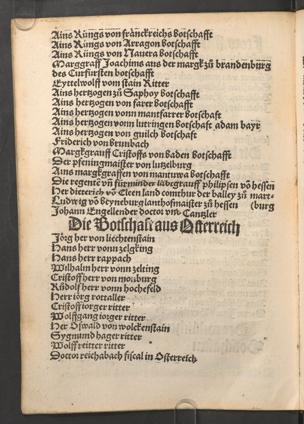 Ains Küngs von franckreichs botschafft
Ains Küngs von Arragon botschafft
Ains Küngs von Nauera botschafft
Marggraff Joachims aus der margk zů brandenburg
des Curfursten botschafft
Eyttelwolff vom stain Ritter
Ains hertzogen zů Saphoy botschafft
Ains hertzogen von farer botschafft
Ains hertzogen vonn manfarrer botschaft
Ains hertzogen vonn luttringen botschaft adam bayr
Ains hertzogen von guilch botschaft
Friderich von brunbach
Margkgrauff Cristoffs von baden botschafft
Der pfeningmaister von lutzelburg
Ains margkgraffen von mantuwa botschafft
Die regentē vñ furmünder lādtgrauff philipsen vō hessen
Her dittterich vō Cleen land comethur der balley zů mar-
Ludwig vō beyneburg lanthofmaister zů hessen (burg
Johann Engellender doctor vnd Cantzler
Die Botschafft aus Osterreich
Jörg her von liechtenstain
Hans herr vonn zelgking
Hans herr rappach
Wilhalm herr vonn zelting
Cristoff herr von moßburg
Rüdolf herr vonn hochefeld
Herr iörg rottaller
Cristoff iorger ritter
Wolffgang iorger ritter
Her Oswald von wolckenstain
Sygmund hager ritter
Wolff reitter ritter
Doctor reichabach fiscal in Osterreich